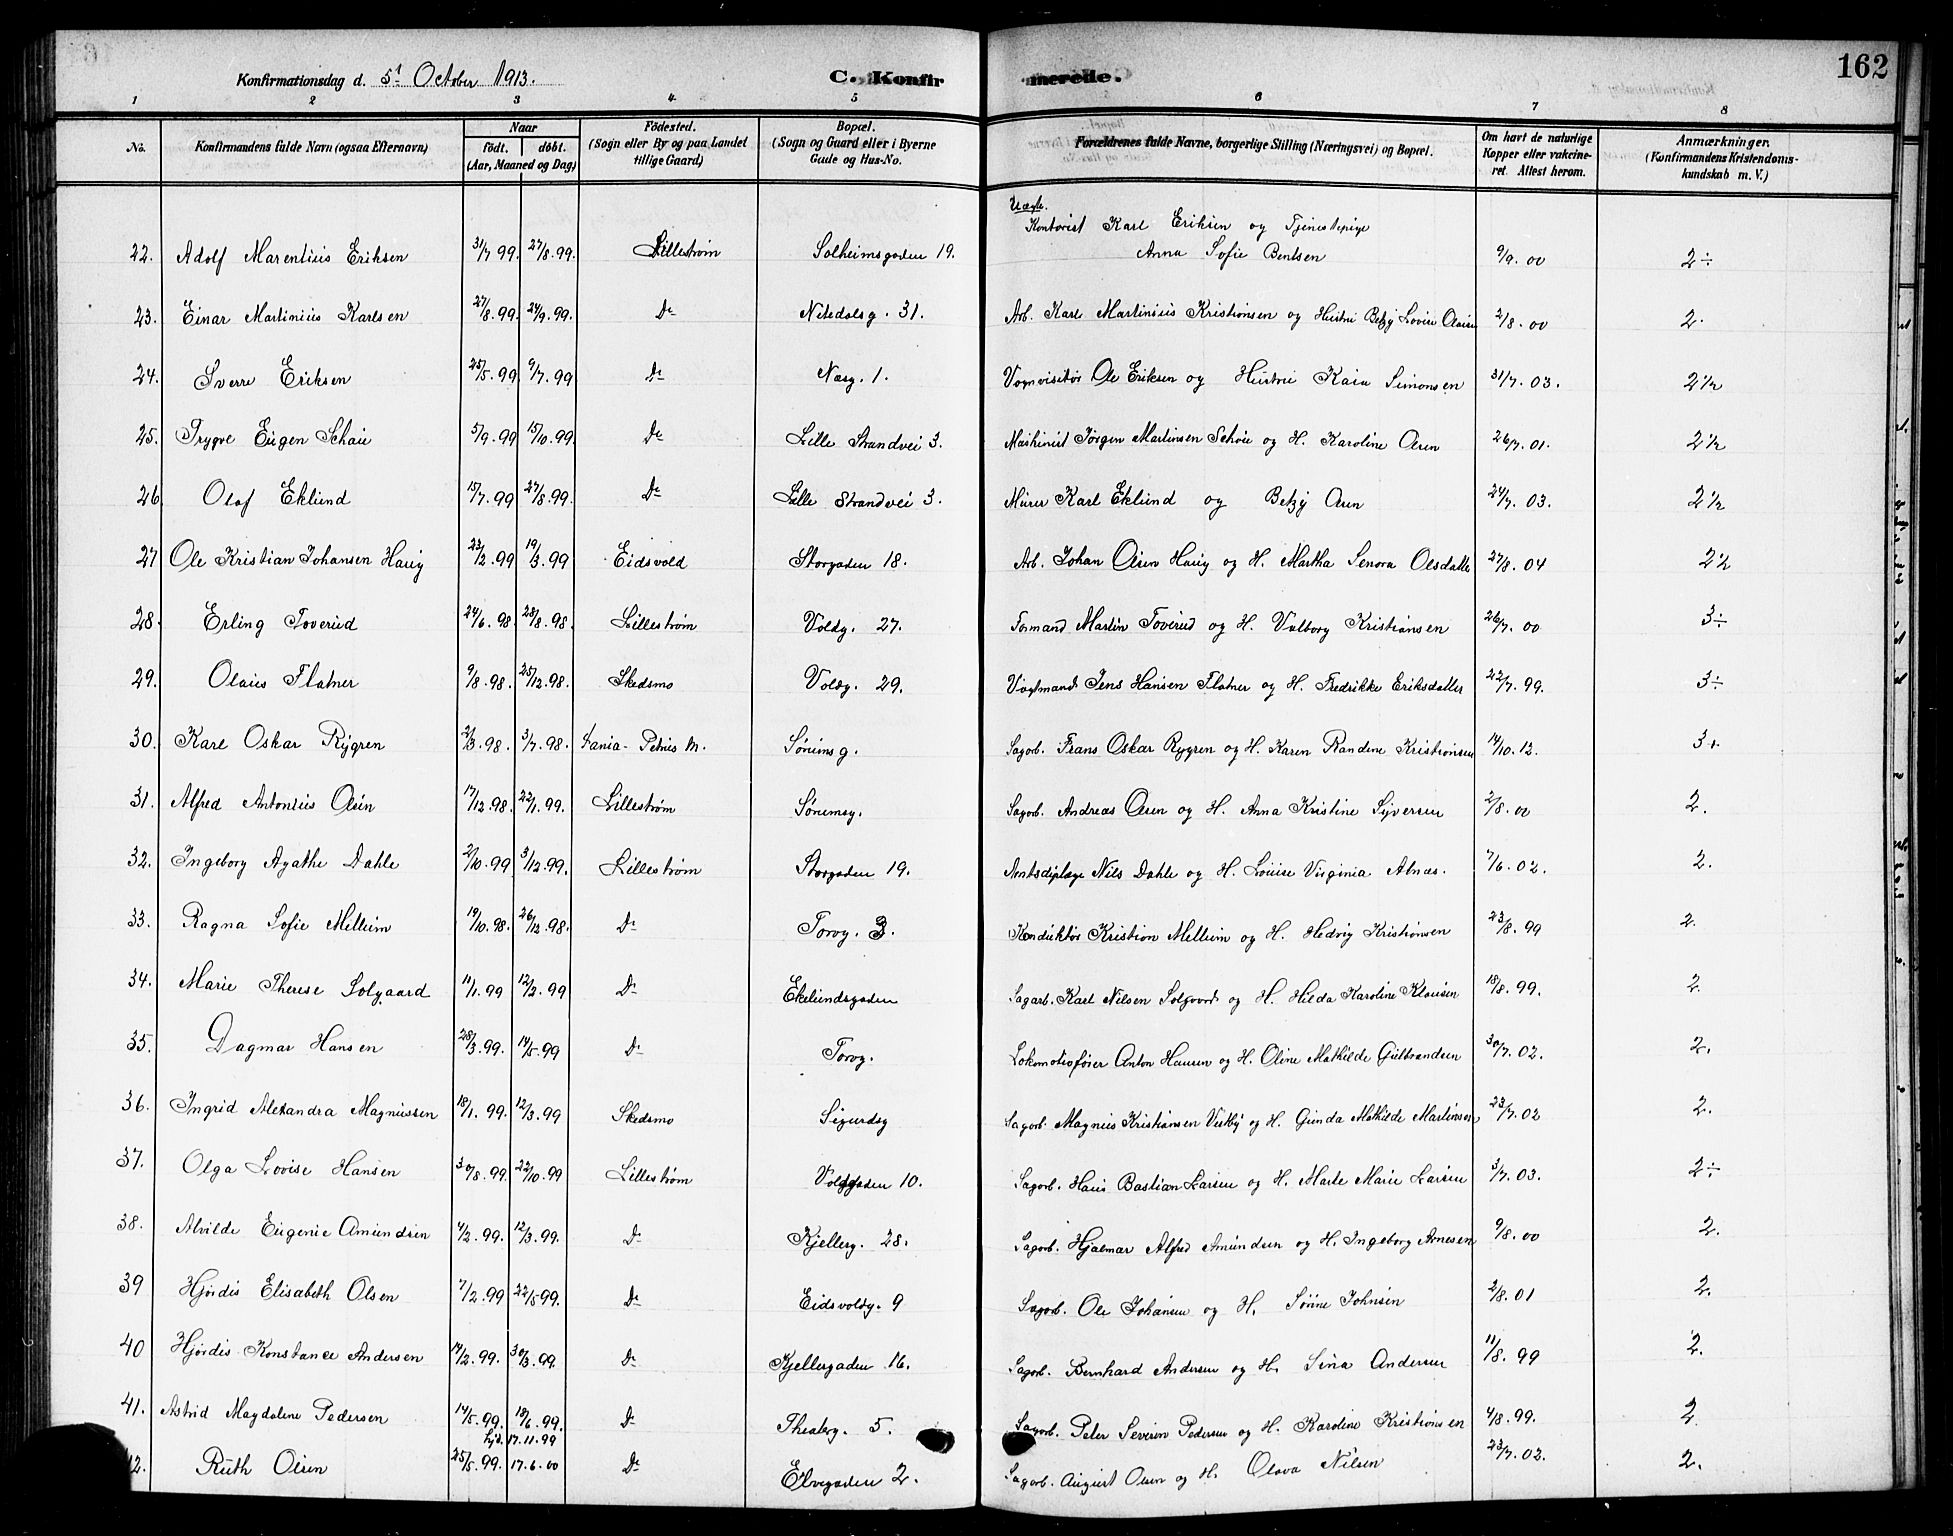 162
Konfirmationsdag d. 5t October 1913.
C. Konfirmerede.
1 2 3 4 5 6 7 8
No. Konfirmandens fulde Navn (ogsaa Efternavn) Naar født. døbt. (Aar, Maaned og Dag) Fødested. (Sogn eller By og paa Landet tillige Gaard) Bopæl. (Sogn og Gaard eller i Byerne Gade og Hus-No. Forældrenes fulde Navne, borgerlige Stilling (Næringsvei) og Bopæl. Om havt de naturlige Kopper eller vakcineret. Attest herom. Anmærkninger. (Konfirmandens Kristendomskundskab m. V.)
Uægte.
Kontorist Karl Eriksen og Tjenestepige
22. Adolf Marentius Eriksen 31/7 99. 27/8.99. Lillestrøm Solheimsgaden 19. Anna Sofie Bentsen 9/9. 00 2÷
23. Einar Martinius Karlsen 27/8.99. 24/9.99. Do Nitedalsg. 31. Arb. Karl Martinius Kristiansen og Hustru Betzy Lovise Olsen 2/8. 00 2.
24. Sverre Eriksen 25/5.99. 9/7.99 Do Næsg. 1. Vognvisitør Ole Eriksen og Hustru Kaia Simonsen 31/7. 03. 2 1/2
25. Trygve Eugen Schøie 5/9.99 15/10.99. Do Lille Strandvei 3. Maskinist Jørgen Martinsen Schøie og H. Karoline Olsen 26/7. 01. 2 1/2
26. Olaf Eklund 15/7.99 27/8.99. Do Lille Strandvei 3. Murer Karl Eklund og Betzy Olsen 24/7. 03. 2 1/2
27 Ole Kristian Johansen Haug 23/2.99 19/3.99 Eidsvold Storgaden 18. Arb. Johan Olsen Haug og H. Martha Senora Olsdatter 27/8. 04 2 1/2
28. Erling Toverud 24/6.98. 28/8.98. Lillestrøm Voldg. 27. Formand Martin Toverud og H. Valborg Kristiansen 26/7. 00 3÷
29. Olaus Flatner 9/8.98. 25/12.98. Skedsmo Voldg. 29. Vogtmand Jens Hansen Flatner og H. Fredrikke Eriksdatter 22/7. 99. 3÷
30. Karl Oskar Rygren 2/3.98. 3/7.98. Petrus M. Sørumsg. Sagarb. Frans Oskar Rygren og H. Karen Randine Kristiansen 14/10. 12. 3+
31. Alfred Antonius Olsen 17/12.98. 22/1.99. Lillestrøm Sørumsg. Sagarb. Andreas Olsen og H. Anna Kristine Syversen 2/8. 00 2.
32. Ingeborg Agathe Dahle 2/10.99 3/12.99. Lillestrøm Storgaden 19. Amtsdiplæge Nils Dahle og H. Louise Virginia Alnæs. 7/6. 02. 2.
33. Ragna Sofie Mellum 19/10.98. 26/12.98. Do Torvg. 3. Konduktør Kristian Mellum og H. Hedvig Kristiansen 23/8. 99 2.
34. Marie Therese Solgaard 11/1.99 12/2.99 Do Ekelundsgaden Sagarb. Karl Nilsen Solgaard og H. Hilda Karoline Klausen 18/8. 99. 2.
35. Dagmar Hansen 28/3.99. 14/5.99 Do Torvg. Lokomotivfører Anton Hansen og H. Oline Mathilde Gulbrandsen 30/7. 02. 2.
36. Ingrid Alexandra Magnussen 18/1.99. 12/3.99 Skedsmo Sigurdsg Sagarb. Magnus Kristiansen Vestby og H. Gunda Mathilde Martinsen 23/7. 02 2.
37. Olga Lovise Hansen 30/8.99. 22/10.99 Lillestrøm Voldgaden 10. Sagarb. Hans Bastian Larsen og H. Marte Marie Larsen 3/7. 03. 2÷
38. Alvilde Eugenie Amundsen 4/2.99. 12/3.99. Do Kjellerg. 28. Sagarb. Hjalmar Alfred Amundsen og H. Ingeborg Arnesen 9/8. 00 2.
39 Hjørdis Elisabeth Olsen 7/2.99 22/5.99. Do Eidsvoldg. 9 Sagarb. Ole Johansen og H. Sørine Johnsen 2/8. 01 2.
40 Hjørdis Konstance Andersen 14/2.99. 30/3.99. Do Kjellergaden 16. Sagarb. Bernhard Andersen og H. Sina Andersen 11/8. 99 2.
41. Astrid Magdalene Pedersen 14/5.99. 18/6.99. Do Theaterg. 5. Sagarb. Peter Severin Pedersen og H. Karoline Kristiansen 4/8. 99. 2.
hjd. 17.11.99
42. Ruth Olsen 25/5.99. 17.6.00 Do Elvegaden 2. Sagarb. August Olsen og H. Olava Nilsen 23/7. 02. 2.